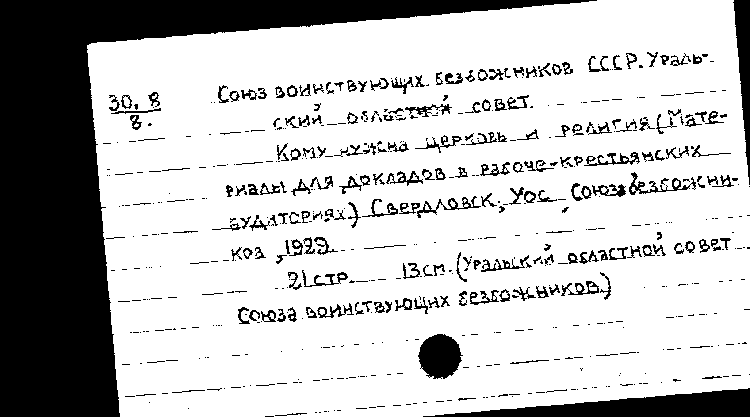 30, 8
8.
Союз воинствующих безбожников СССР. Ураль-
ский областной совет.
Кому нужна церковь и религия (Мате-
риалы для докладов в рабоче-крестьянских
аудиториях.) Свердловск, Уос, Союза безбожни-
ков, 1929.
21 стр. 13 см. (Уральский областной совет
Союза воинствующих безбожников.)